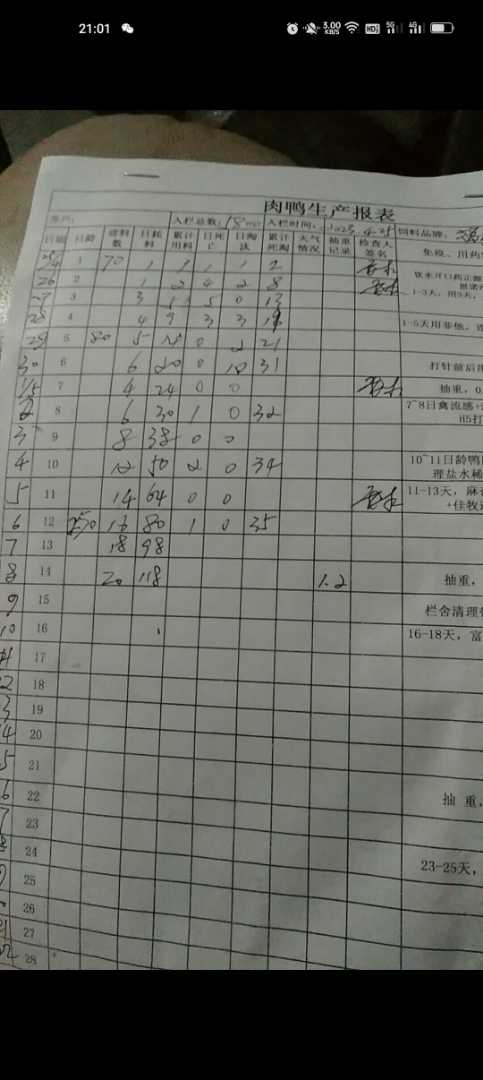 21:01
3.00 KB/S HD 5G 4G
肉鸭生产报表
入栏总数: 入栏时间: 2023.4.25 饲料品牌:
日期 日龄 领料数 日耗料 累计用料 日死亡 日淘汰 累计死淘 天气情况 抽重记录 检查人签名 免疫、用药
1 70 1 1 1 1 2
26 2 1 2 4 2 8
27 3 3 5 5 0 13 1-3天,用3天,
28 4 4 9 3 3
29 5 80 5 0 2 21
30 6 6 20 0 10 31 打针前后用
1/5 7 4 24 0 0 抽重,
2 8 6 30 1 0 32 7~8日禽流感+
H5打
3 9 8 38 0 0
4 10 12 50 2 0 34 10~11日龄鸭
理盐水稀
5 11 14 64 0 0 11-13天,麻
+佳牧
6 12 250 16 80 1 0 35
7 13 18 98
8 14 20 118 1.2 抽重,
9 15 栏舍清理
10 16 16-18天,富
11 17
12 18
13 19
14 20
15 21
16 22 抽 重,
23
24 23-25天,
25
26
27
28